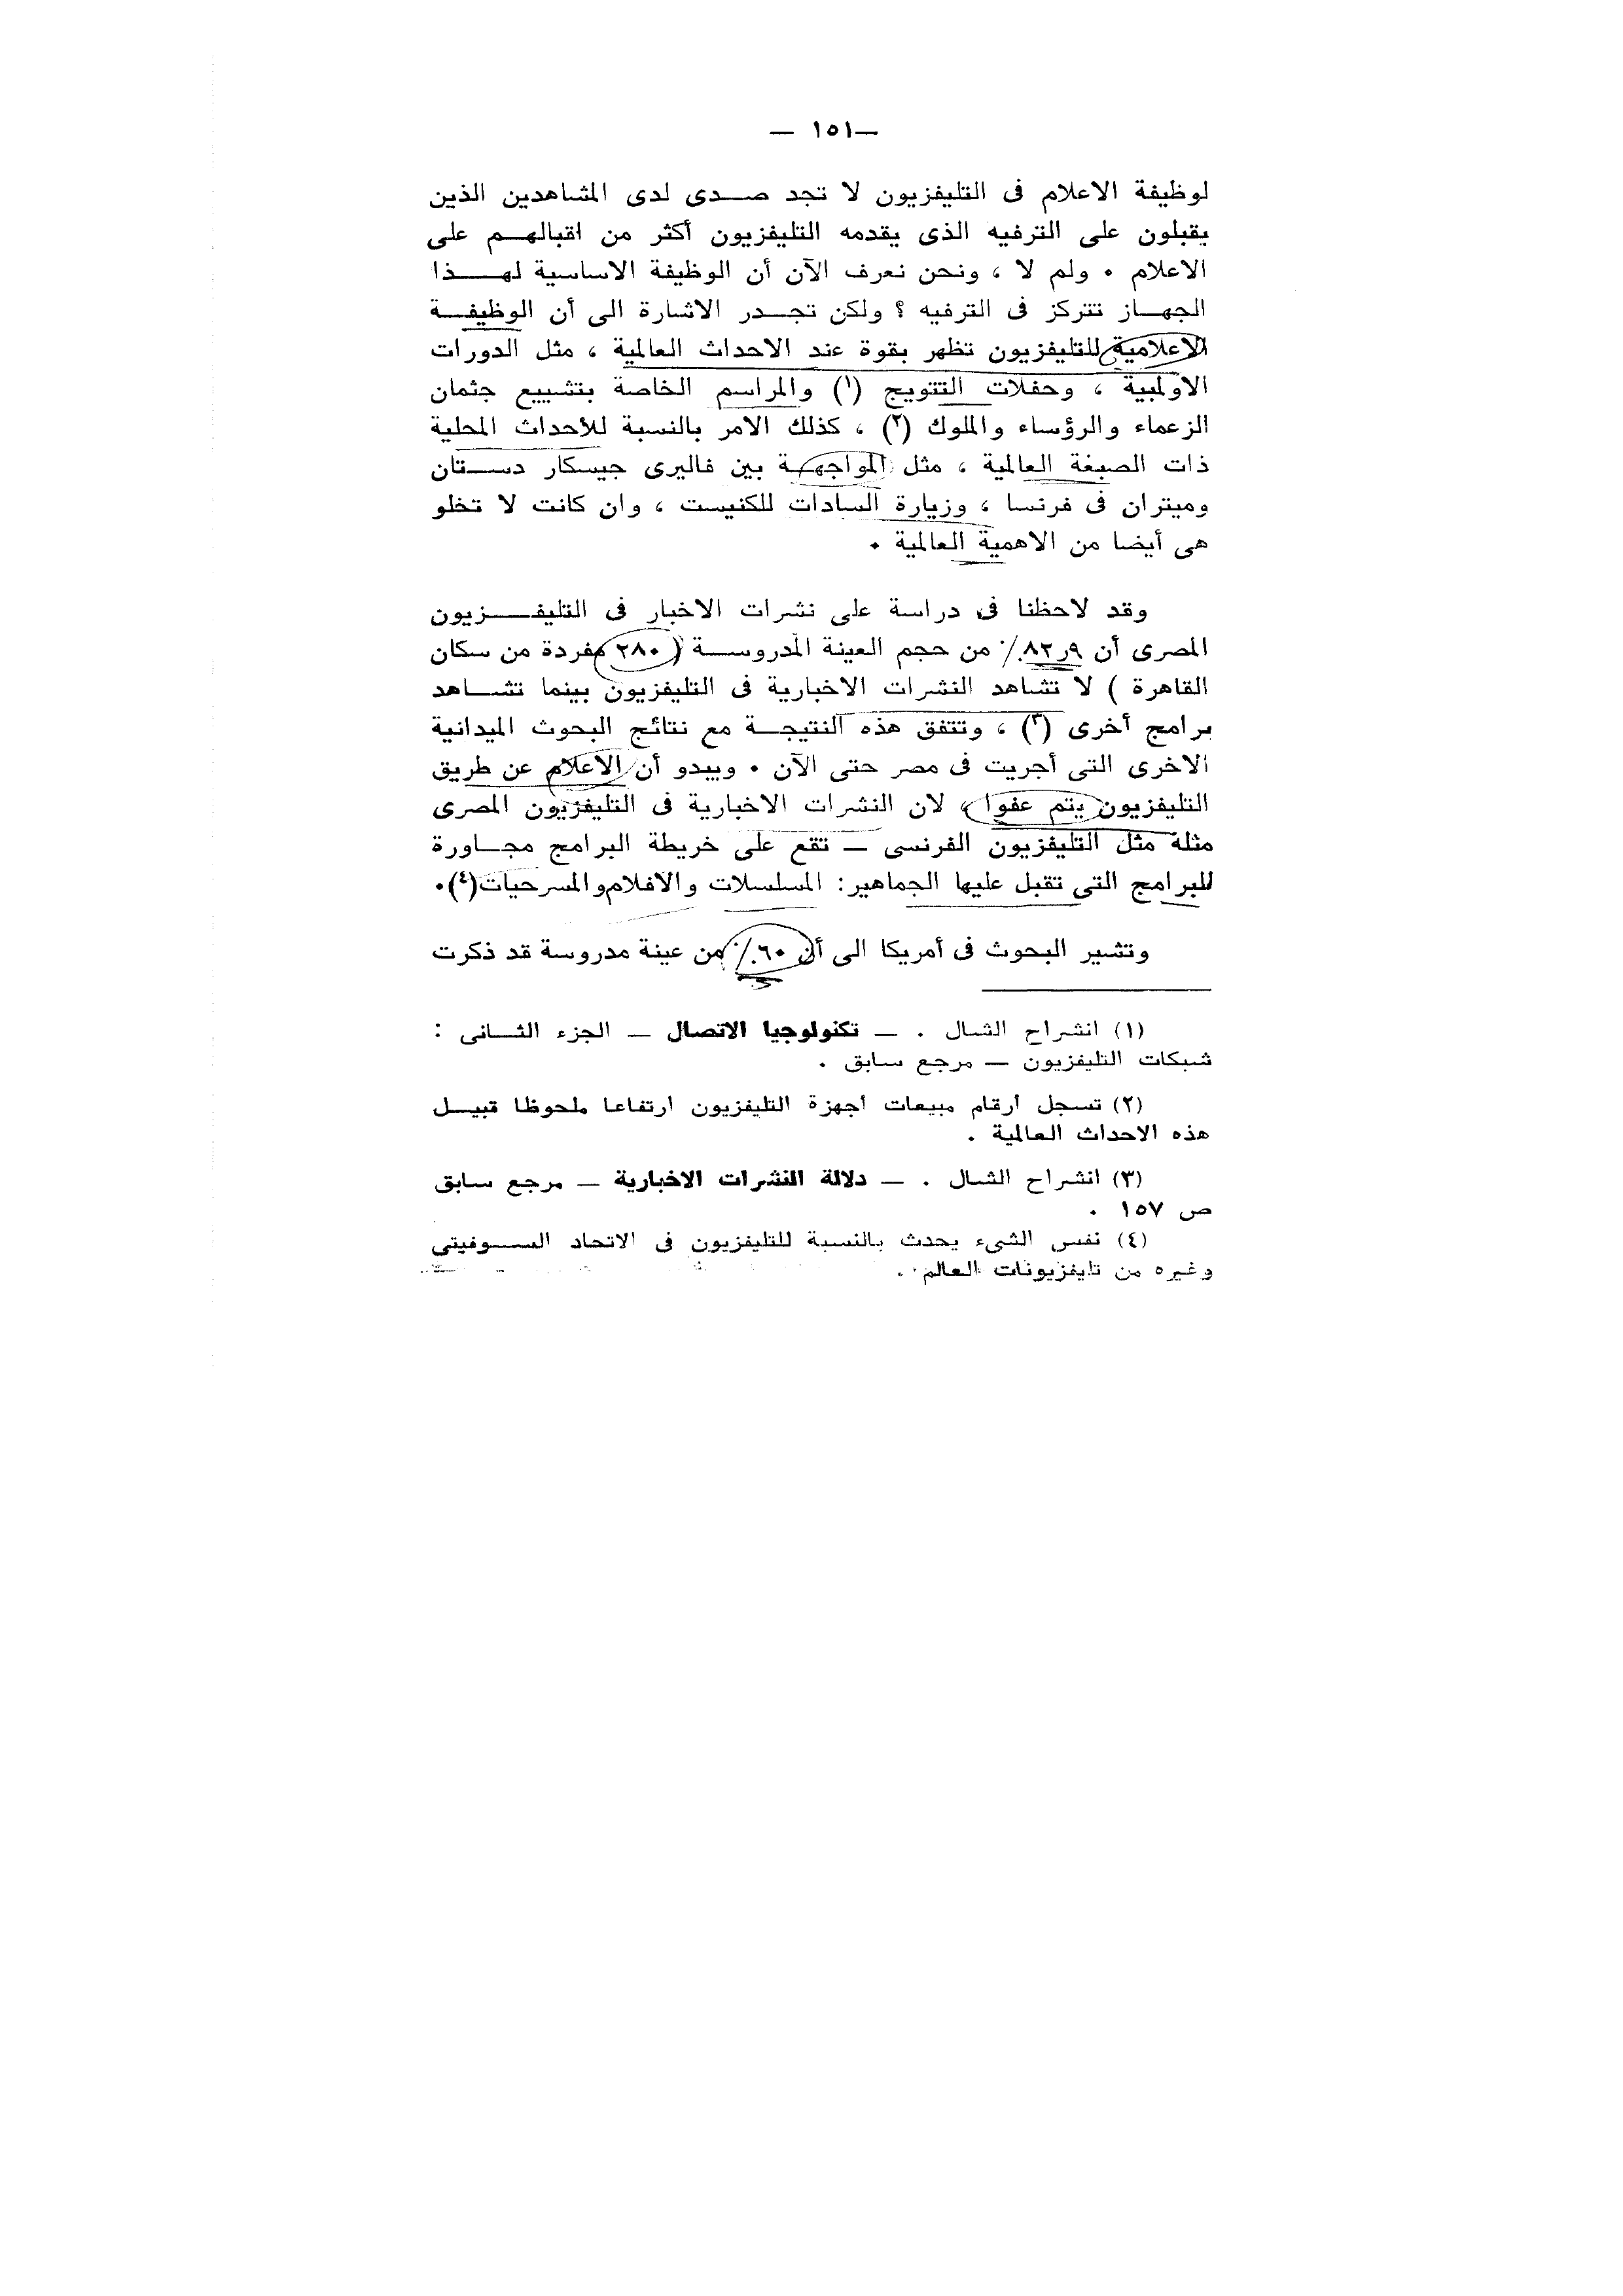 — ١٥١ —
لوظيفة الاعلام فى التليفزيون لا تجد صدى لدى المشاهدين الذين
يقبلون على الترفيه الذى يقدمه التليفزيون أكثر من اقبالهم على
الاعلام . ولم لا ، ونحن نعرف الآن أن الوظيفة الاساسية لهذا
الجهاز تتركز فى الترفيه ؟ ولكن تجدر الاشارة الى أن الوظيفة
الاعلامية للتليفزيون تظهر بقوة عند الاحداث العالمية ، مثل الدورات
الاولمبية ، وحفلات التتويج (١) والمراسم الخاصة بتشييع جثمان
الزعماء والرؤساء والملوك (٢) ، كذلك الامر بالنسبة للأحداث المحلية
ذات الصبغة العالمية ، مثل المواجهة بين فاليرى جيسكار دستان
وميتران فى فرنسا ، وزيارة السادات للكنيست ، وان كانت لا تخلو
هى أيضا من الاهمية العالمية .
وقد لاحظنا فى دراسة على نشرات الاخبار فى التليفزيون
المصرى أن ٩ر٨٢٪ من حجم العينة المدروسة ( ٢٨٠ مفردة من سكان
القاهرة ) لا تشاهد النشرات الاخبارية فى التليفزيون بينما تشاهد
برامج أخرى (٣) ، وتتفق هذه النتيجة مع نتائج البحوث الميدانية
الاخرى التى أجريت فى مصر حتى الآن . ويبدو أن الاعلام عن طريق
التليفزيون يتم عفوا ، لان النشرات الاخبارية فى التليفزيون المصرى
مثله مثل التليفزيون الفرنسى — تقع على خريطة البرامج مجاورة
للبرامج التى تقبل عليها الجماهير: المسلسلات والافلام والمسرحيات(٤).
وتشير البحوث فى أمريكا الى أن ٦٠٪ من عينة مدروسة قد ذكرت
(١) انشراح الشال . — تكنولوجيا الاتصال — الجزء الثانى :
شبكات التليفزيون — مرجع سابق .
(٢) تسجل أرقام مبيعات أجهزة التليفزيون ارتفاعا ملحوظا قبيل
هذه الاحداث العالمية .
(٣) انشراح الشال . — دلالة النشرات الاخبارية — مرجع سابق
ص ١٥٧ .
(٤) نفس الشىء يحدث بالنسبة للتليفزيون فى الاتحاد السوفيتى
وغيره من تليفزيونات العالم .